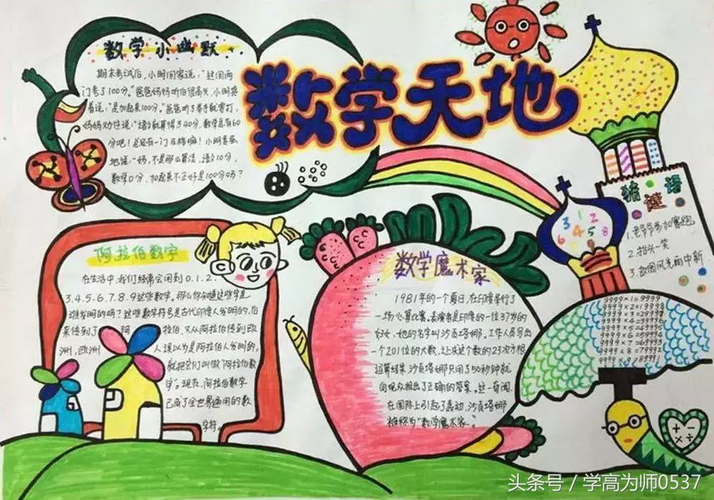 数学天地
数学小幽默
期末考试后，小明回家说，"这回两
门考了100分。"爸爸妈妈听后很高兴，小明接
着说："是加起来100分。"爸爸听了举手就要打，
妈妈劝住说："语文就算得了40分，数学总有60
分吧！总还有一门及格嘛！小明委屈
地说："妈，不是那么算法，语文10分，
数学0分，加起来不正好是100吗？
阿拉伯数字
在生活中，我们经常会用到0.1.2.
3.4.5.6.7.8.9这些数字。那么你知道这些字是
谁发明的吗？这些数字符号是古代印度人发明的，后
来传到了阿拉伯，又从阿拉伯传到欧
洲，欧洲人误以为是阿拉伯人发明的，
就把它们叫做"阿拉伯数
字"。现在，阿拉伯数字
已成了全世界通用的数
字符.
数学魔术家
1981年的一个夏日，在印度举行了
一场心算比赛。表演者是印度的一位37岁的
妇女，她的名字叫沙贡塔娜。工作人员写出
一个201位的大数，让求这个数的23次方根
运算结果沙贡塔娜只用了50秒钟就
向观众报出了正确的答案。这一奇闻，
在国际上引起了轰动，沙贡塔娜
被称为"数学魔术家"。
猜谜语
1.老爷爷参加赛跑
2.抬头一笑
3.故国风光雨中新
头条号 / 学高为师0537